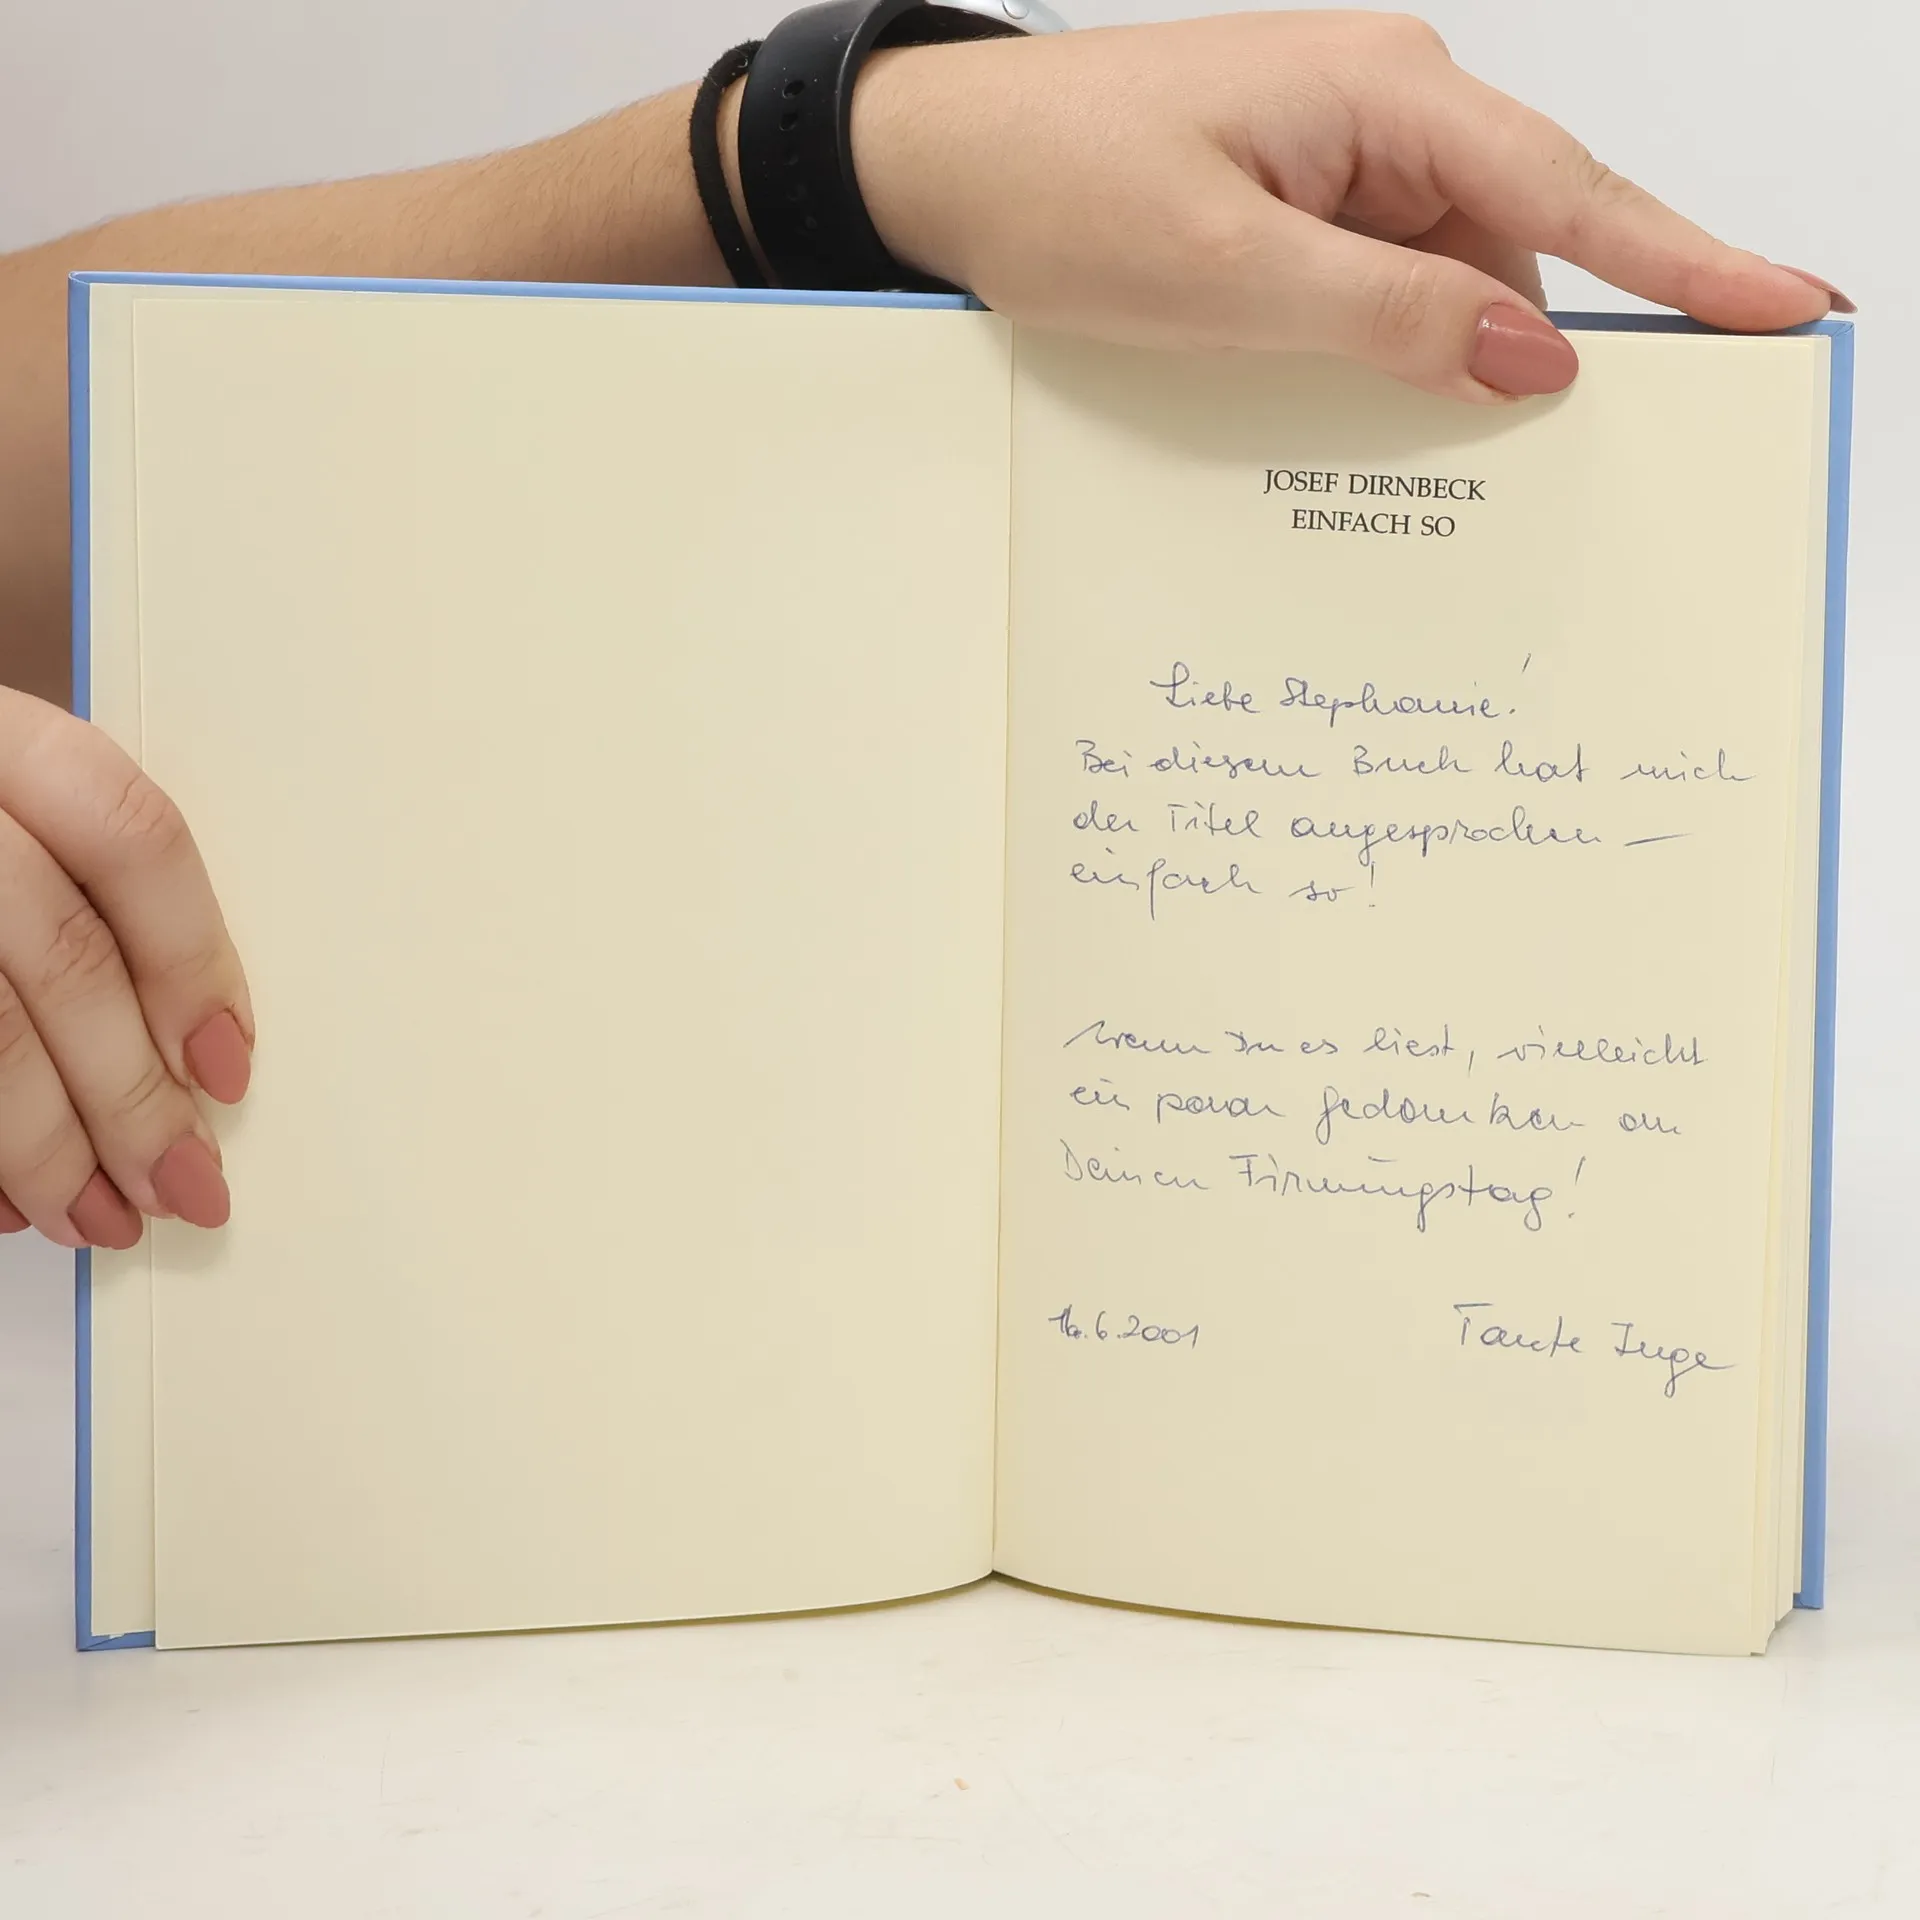 JOSEF DIRNBECK
EINFACH SO
Liebe Stephanie!
Bei diesem Buch hat mich
der Titel angesprochen –
einfach so!
Wenn Du es liest, vielleicht
ein paar Gedanken an
Deinen Firmungstag!
16.6.2001 Tante Inge